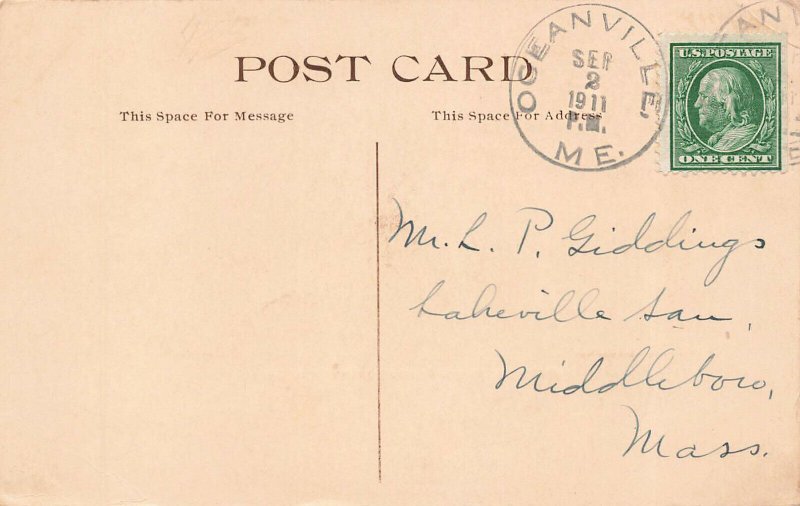 POST CARD
This Space For Message
This Space For Address
OCEANVILLE,
SEP
2
1911
P.M.
ME.
U.S. POSTAGE
ONE CENT
Mr. L. P. Giddings
Lakeville San,
Middleboro,
Mass.